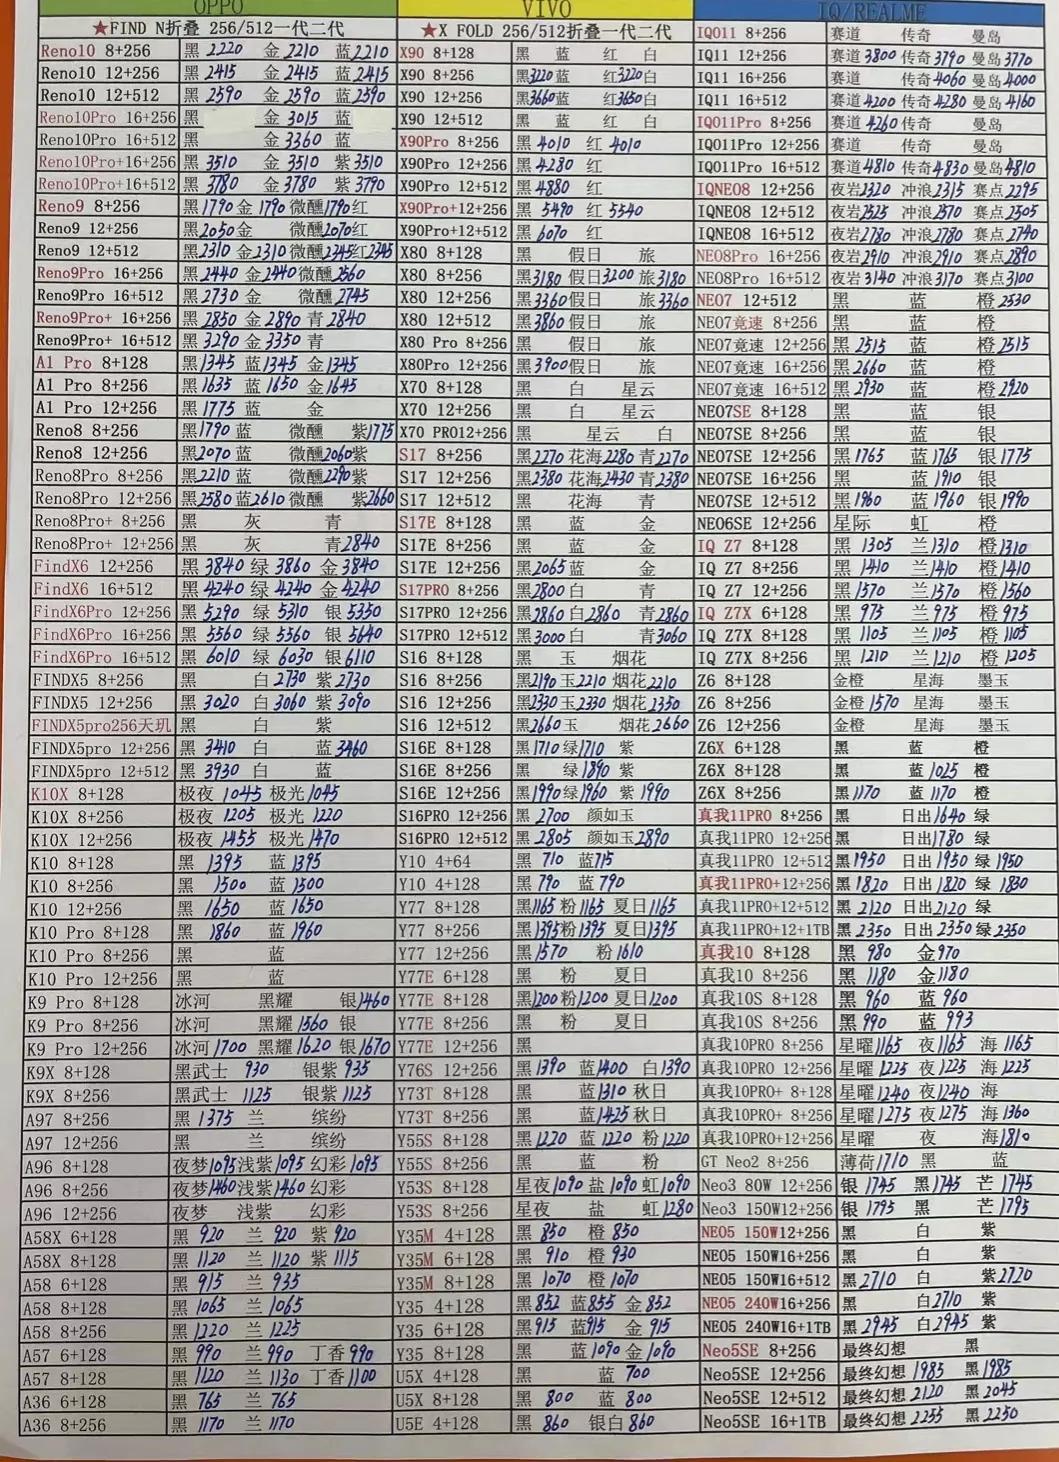 OPPO
★FIND N折叠 256/512一代二代
Reno10 8+256 黑 2220 金 2210 蓝 2210
Reno10 12+256 黑 2415 金 2415 蓝 2415
Reno10 12+512 黑 2590 金 2590 蓝 2590
Reno10Pro 16+256 黑 金 3015 蓝
Reno10Pro 16+512 黑 金 3360 蓝
Reno10Pro+16+256 黑 3510 金 3510 紫 3510
Reno10Pro+16+512 黑 3780 金 3780 紫 3790
Reno9 8+256 黑 1790 金 1790 微醺 1790 红
Reno9 12+256 黑 2050 金 微醺 2070 红
Reno9 12+512 黑 2310 金 2310 微醺 2345 红 2345
Reno9Pro 16+256 黑 2440 金 2440 微醺 2560
Reno9Pro 16+512 黑 2730 金 微醺 2745
Reno9Pro+ 16+256 黑 2850 金 2890 青 2840
Reno9Pro+ 16+512 黑 3290 金 3350 青
A1 Pro 8+128 黑 1345 蓝 1345 金 1345
A1 Pro 8+256 黑 1635 蓝 1650 金 1645
A1 Pro 12+256 黑 1775 蓝 金
Reno8 8+256 黑 1790 蓝 微醺 紫 1775
Reno8 12+256 黑 2070 蓝 微醺 2060 紫
Reno8Pro 8+256 黑 2210 蓝 微醺 2290 紫
Reno8Pro 12+256 黑 2580 蓝 2610 微醺 紫 2660
Reno8Pro+ 8+256 黑 灰 青
Reno8Pro+ 12+256 黑 灰 青 2840
FindX6 12+256 黑 3840 绿 3860 金 3840
FindX6 16+512 黑 4240 绿 4240 金 4240
FindX6Pro 12+256 黑 5290 绿 5310 银 5350
FindX6Pro 16+256 黑 5560 绿 5560 银 5640
FindX6Pro 16+512 黑 6010 绿 6030 银 6110
FINDX5 8+256 黑 白 2730 紫 2730
FINDX5 12+256 黑 3020 白 3060 紫 3090
FINDX5pro256天玑 黑 白 紫
FINDX5pro 12+256 黑 3410 白 蓝 3460
FINDX5pro 12+512 黑 3930 白 蓝
K10X 8+128 极夜 1045 极光 1045
K10X 8+256 极夜 1205 极光 1220
K10X 12+256 极夜 1455 极光 1470
K10 8+128 黑 1395 蓝 1395
K10 8+256 黑 1500 蓝 1500
K10 12+256 黑 1650 蓝 1650
K10 Pro 8+128 黑 1860 蓝 1960
K10 Pro 8+256 黑 蓝
K10 Pro 12+256 黑 蓝
K9 Pro 8+128 冰河 黑耀 银 1460
K9 Pro 8+256 冰河 黑耀 1560 银
K9 Pro 12+256 冰河 1700 黑耀 1620 银 1670
K9X 8+128 黑武士 930 银紫 935
K9X 8+256 黑武士 1125 银紫 1125
A97 8+256 黑 1375 兰 缤纷
A97 12+256 黑 兰 缤纷
A96 8+128 夜梦 1095 浅紫 1095 幻彩 1095
A96 8+256 夜梦 1460 浅紫 1460 幻彩
A96 12+256 夜梦 浅紫 幻彩
A58X 6+128 黑 920 兰 920 紫 920
A58X 8+128 黑 1120 兰 1120 紫 1115
A58 6+128 黑 915 兰 935
A58 8+128 黑 1065 兰 1065
A58 8+256 黑 1220 兰 1225
A57 6+128 黑 990 兰 990 丁香 990
A57 8+128 黑 1120 兰 1130 丁香 1100
A36 6+128 黑 765 兰 765
A36 8+256 黑 1170 兰 1170
VIVO
★X FOLD 256/512折叠一代二代
X90 8+128 黑 蓝 红 白
X90 8+256 黑 3220 蓝 红 3220 白
X90 12+256 黑 3660 蓝 红 3650 白
X90 12+512 黑 蓝 红 白
X90Pro 8+256 黑 4010 红 4010
X90Pro 12+256 黑 4230 红
X90Pro 12+512 黑 4880 红
X90Pro+12+256 黑 5490 红 5540
X90Pro+12+512 黑 6070 红
X80 8+128 黑 假日 旅
X80 8+256 黑 3180 假日 3200 旅 3180
X80 12+256 黑 3360 假日 旅 3360
X80 12+512 黑 3860 假日 旅
X80 Pro 8+256 黑 假日 旅
X80Pro 12+256 黑 3900 假日 旅
X70 8+128 黑 白 星云
X70 12+256 黑 白 星云
X70 PRO12+256 黑 星云 白
S17 8+256 黑 2270 花海 2280 青 2270
S17 12+256 黑 2380 花海 2430 青 2380
S17 12+512 黑 花海 青
S17E 8+128 黑 蓝 金
S17E 8+256 黑 蓝 金
S17E 12+256 黑 2065 蓝 金
S17PRO 8+256 黑 2800 白 青
S17PRO 12+256 黑 2860 白 2860 青 2860
S17PRO 12+512 黑 3000 白 青 3060
S16 8+128 黑 玉 烟花
S16 8+256 黑 2190 玉 2210 烟花 2210
S16 12+256 黑 2330 玉 2330 烟花 2350
S16 12+512 黑 2660 玉 烟花 2660
S16E 8+128 黑 1710 绿 1710 紫
S16E 8+256 黑 绿 1890 紫
S16E 12+256 黑 1990 绿 1960 紫 1990
S16PRO 12+256 黑 2700 颜如玉
S16PRO 12+512 黑 2805 颜如玉 2890
Y10 4+64 黑 710 蓝 715
Y10 4+128 黑 790 蓝 790
Y77 8+128 黑 1165 粉 1165 夏日 1165
Y77 8+256 黑 1395 粉 1395 夏日 1395
Y77 12+256 黑 1570 粉 1610
Y77E 6+128 黑 粉 夏日
Y77E 8+128 黑 1200 粉 1200 夏日 1200
Y77E 8+256 黑 粉 夏日
Y77E 12+256 黑
Y76S 12+256 黑 1390 蓝 1400 白 1390
Y73T 8+128 黑 蓝 1310 秋日
Y73T 8+256 黑 蓝 1425 秋日
Y55S 8+128 黑 1220 蓝 1220 粉 1220
Y55S 8+256 黑 蓝 粉
Y53S 8+128 星夜 1090 盐 1090 虹 1090
Y53S 8+256 星夜 盐 虹 1280
Y35M 4+128 黑 850 橙 850
Y35M 6+128 黑 910 橙 930
Y35M 8+128 黑 1070 橙 1070
Y35 4+128 黑 852 蓝 855 金 852
Y35 6+128 黑 915 蓝 915 金 915
Y35 8+128 黑 蓝 1090 金 1090
U5X 4+128 黑 蓝 700
U5X 8+128 黑 800 蓝 800
U5E 4+128 黑 860 银白 860
IQ/REALME
IQO11 8+256 赛道 传奇 曼岛
IQ11 12+256 赛道 3800 传奇 3790 曼岛 3770
IQ11 16+256 赛道 传奇 4060 曼岛 4000
IQ11 16+512 赛道 4200 传奇 4280 曼岛 4160
IQO11Pro 8+256 赛道 4260 传奇 曼岛
IQO11Pro 12+256 赛道 传奇 曼岛
IQO11Pro 16+512 赛道 4810 传奇 4830 曼岛 4810
IQNEO8 12+256 夜岩 2320 冲浪 2315 赛点 2295
IQNEO8 12+512 夜岩 2525 冲浪 2570 赛点 2505
IQNEO8 16+512 夜岩 2780 冲浪 2780 赛点 2740
NEO8Pro 16+256 夜岩 2910 冲浪 2910 赛点 2890
NEO8Pro 16+512 夜岩 3140 冲浪 3170 赛点 3100
NEO7 12+512 黑 蓝 橙 2530
NEO7竞速 8+256 黑 蓝 橙
NEO7竞速 12+256 黑 2515 蓝 橙 2515
NEO7竞速 16+256 黑 2660 蓝 橙
NEO7竞速 16+512 黑 2930 蓝 橙 2920
NEO7SE 8+128 黑 蓝 银
NEO7SE 8+256 黑 蓝 银
NEO7SE 12+256 黑 1765 蓝 1765 银 1775
NEO7SE 16+256 黑 蓝 1910 银
NEO7SE 12+512 黑 1960 蓝 1960 银 1990
NEO6SE 12+256 星际 虹 橙
IQ Z7 8+128 黑 1305 兰 1310 橙 1310
IQ Z7 8+256 黑 1410 兰 1410 橙 1410
IQ Z7 12+256 黑 1570 兰 1570 橙 1560
IQ Z7X 6+128 黑 975 兰 975 橙 975
IQ Z7X 8+128 黑 1105 兰 1105 橙 1105
IQ Z7X 8+256 黑 1210 兰 1210 橙 1205
Z6 8+128 金橙 星海 墨玉
Z6 8+256 金橙 1570 星海 墨玉
Z6 12+256 金橙 星海 墨玉
Z6X 6+128 黑 蓝 橙
Z6X 8+128 黑 蓝 1025 橙
Z6X 8+256 黑 1170 蓝 1170 橙
真我11PRO 8+256 黑 日出 1640 绿
真我11PRO 12+256 黑 日出 1780 绿
真我11PRO 12+512 黑 1950 日出 1950 绿 1950
真我11PRO+12+256 黑 1820 日出 1820 绿 1830
真我11PRO+12+512 黑 2120 日出 2120 绿
真我11PRO+12+1TB 黑 2350 日出 2350 绿 2350
真我10 8+128 黑 980 金 970
真我10 8+256 黑 1180 金 1180
真我10S 8+128 黑 960 蓝 960
真我10S 8+256 黑 990 蓝 993
真我10PRO 8+256 星曜 1165 夜 1165 海 1165
真我10PRO 12+256 星曜 1225 夜 1225 海 1225
真我10PRO+ 8+128 星曜 1240 夜 1240 海
真我10PRO+ 8+256 星曜 1275 夜 1275 海 1360
真我10PRO+12+256 星曜 夜 海 1810
GT Neo2 8+256 薄荷 1710 黑 蓝
Neo3 80W 12+256 银 1745 黑 1745 芒 1745
Neo3 150W12+256 银 1795 黑 芒 1795
NEO5 150W12+256 黑 白 紫
NEO5 150W16+256 黑 白 紫
NEO5 150W16+512 黑 2710 白 紫 2720
NEO5 240W16+256 黑 白 2710 紫
NEO5 240W16+1TB 黑 2945 白 2945 紫
Neo5SE 8+256 最终幻想 黑
Neo5SE 12+256 最终幻想 1985 黑 1985
Neo5SE 12+512 最终幻想 2120 黑 2045
Neo5SE 16+1TB 最终幻想 2255 黑 2250